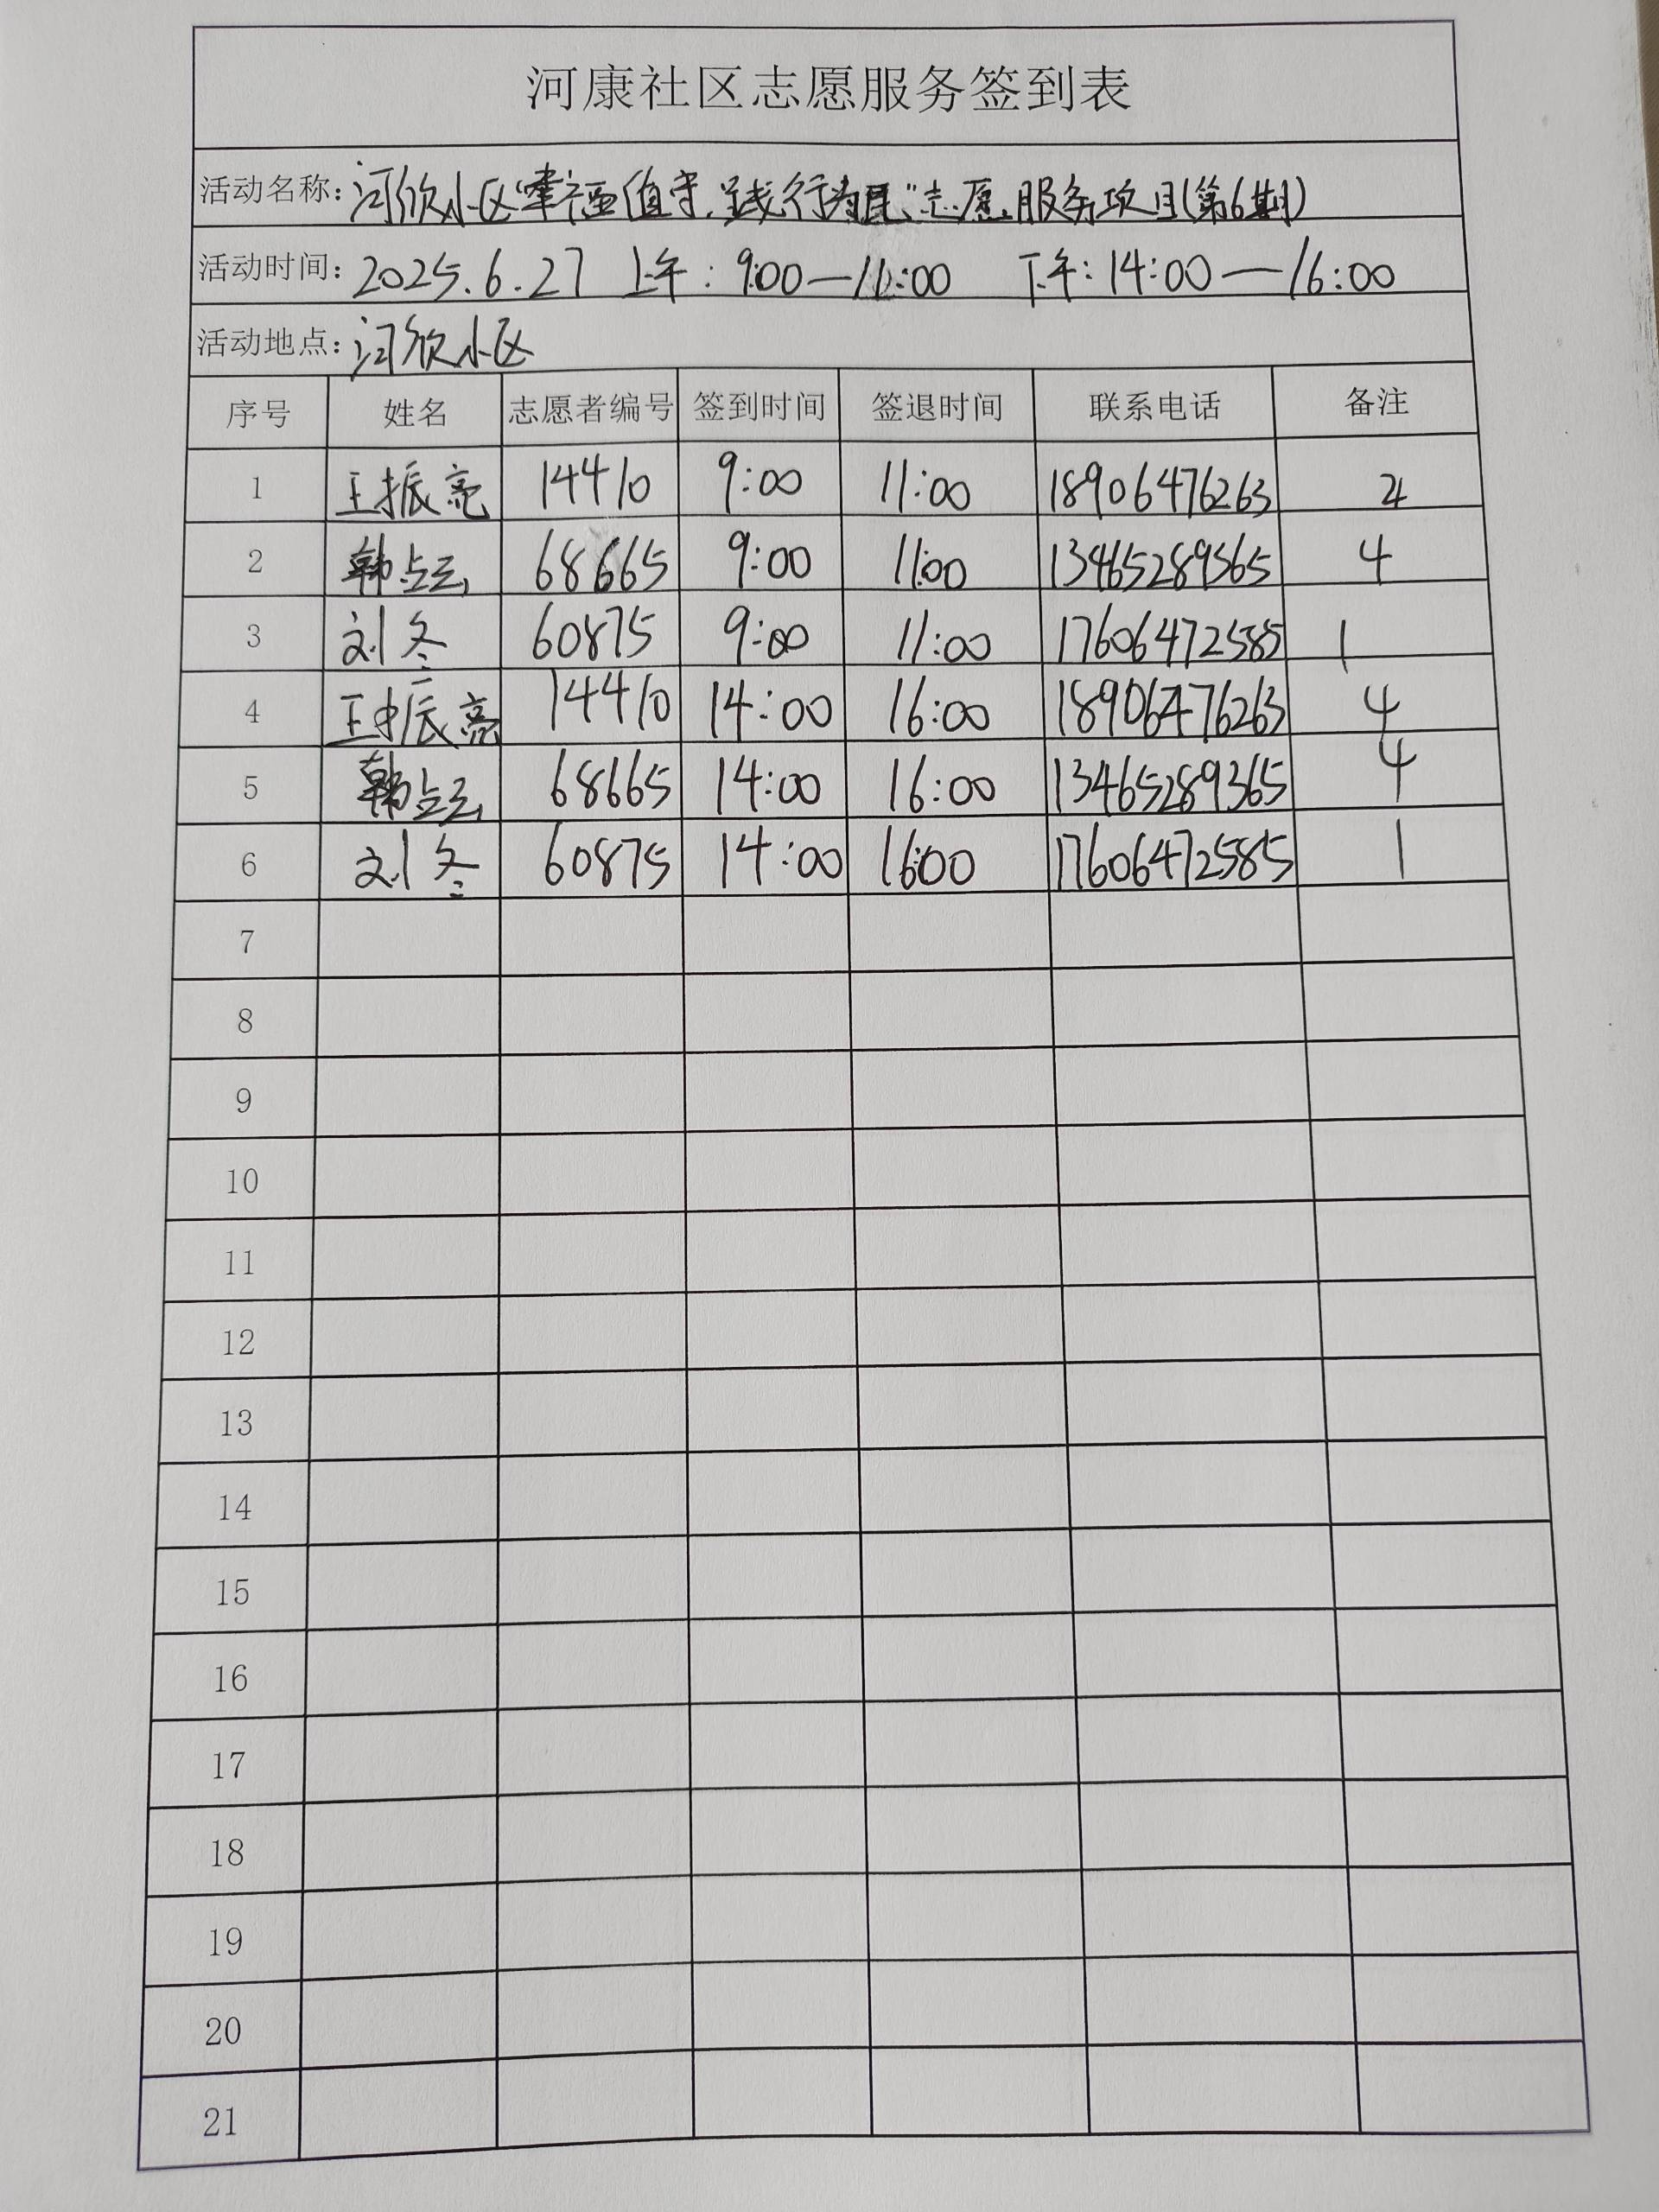 河康社区志愿服务签到表
活动名称: 河欣小区"幸福值守,践行为民"志愿服务项目(第6期)
活动时间: 2025.6.27 上午: 9:00—11:00 下午: 14:00—16:00
活动地点: 河欣小区
序号 姓名 志愿者编号 签到时间 签退时间 联系电话 备注
1 王振亮 14410 9:00 11:00 18906476263 4
2 韩占云 68665 9:00 11:00 13465289365 4
3 刘冬 60875 9:00 11:00 17606472585 1
4 王振亮 14410 14:00 16:00 18906476263 4
5 韩占云 68665 14:00 16:00 13465289365 4
6 刘冬 60875 14:00 16:00 17606472585 1
7
8
9
10
11
12
13
14
15
16
17
18
19
20
21